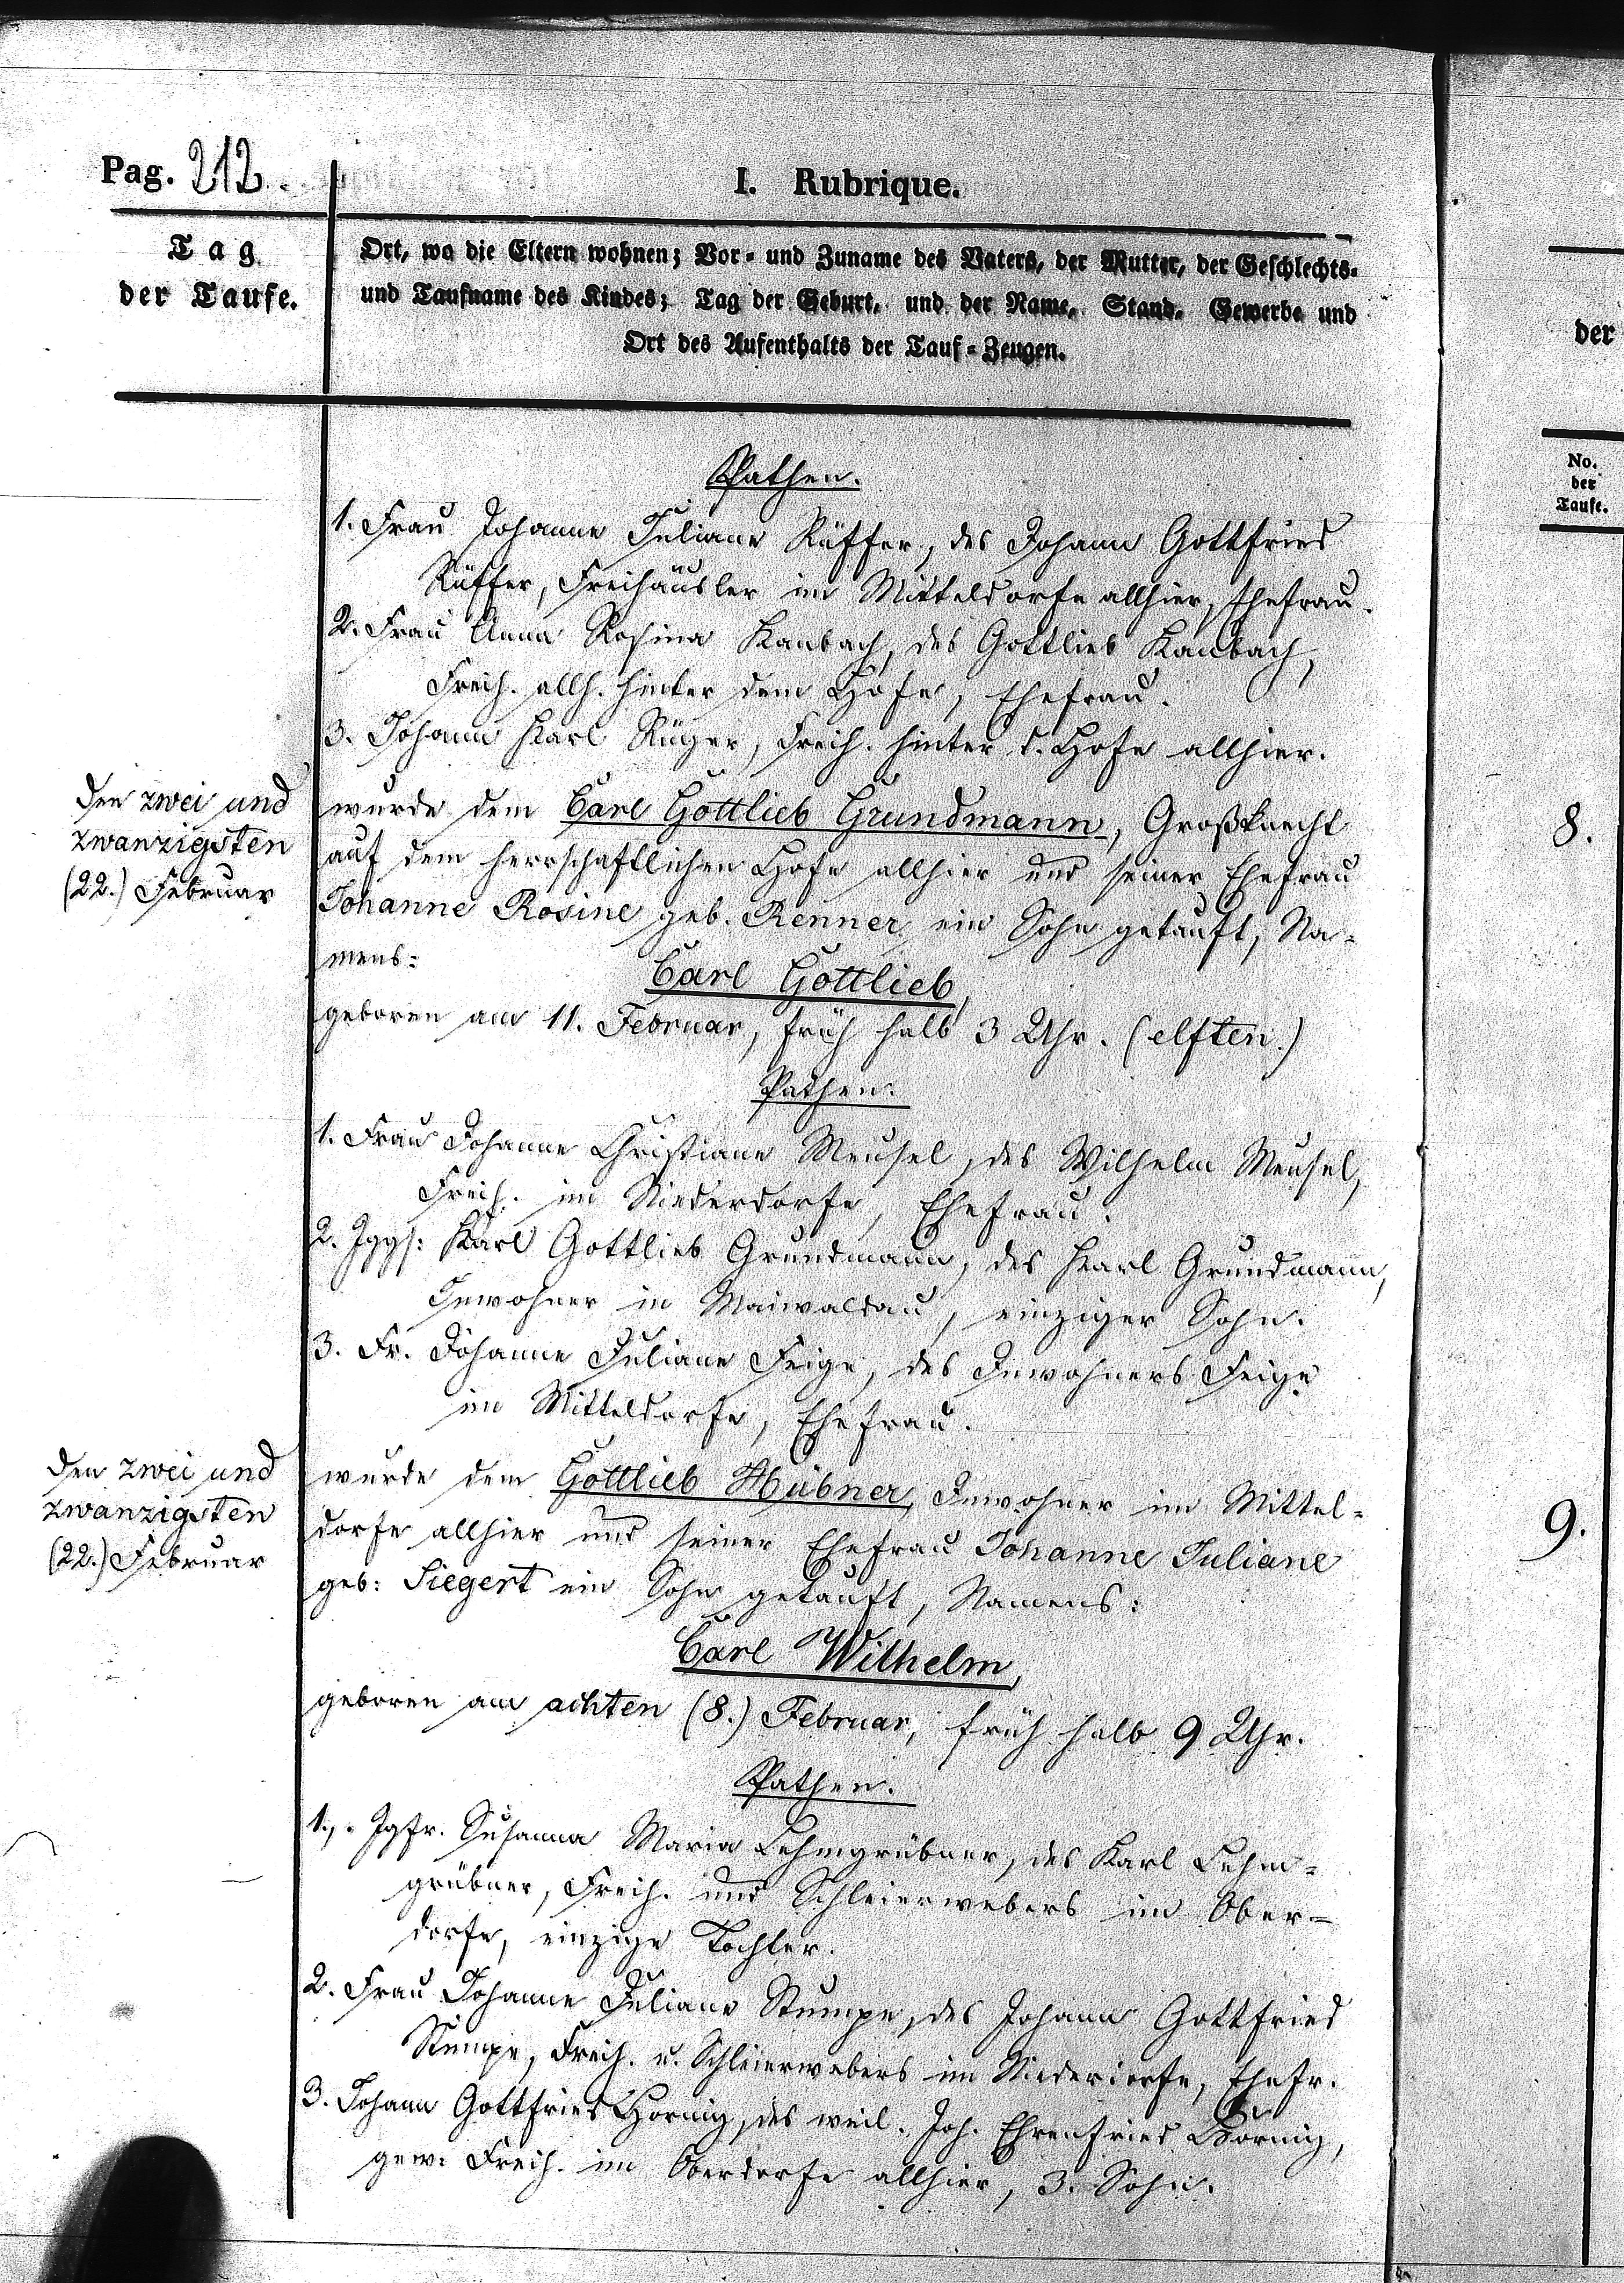 Pag. 212.
I. Rubrique.
Tag
der Taufe.
Ort, wo die Eltern wohnen; Vor- und Zuname des Vaters, der Mutter, der Geschlechts-
und Taufname des Kindes; Tag der Geburt, und der Name, Stand, Gewerbe und
Ort des Aufenthalts der Tauf-Zeugen.
der
No.
der
Taufe.
Pathen.
1. Frau Johanne Juliane Rüffer, des Johann Gottfried
Rüffer, Freihäusler im Mitteldorfe allhier, Ehefrau.
2. Frau Anna Rosina Kambach, des Gottlieb Kambach,
Freih. allh. hinter dem Hofe, Ehefrau.
3. Johann Karl Rüger, Freih. hinter d. Hofe allhier.
Den zwei und
zwanzigsten
(22.) Februar
wurde dem Carl Gottlieb Grundmann, Großknecht
auf dem herrschaftlichen Hofe allhier und seiner Ehefrau
Johanne Rosine geb. Renner ein Sohn getauft, Na-
mens:
Carl Gottlieb,
geboren am 11. Februar, früh halb 3 Uhr. (elften.)
8.
Pathen.
1. Frau Johanne Christiane Meusel, des Wilhelm Meusel,
Freih. im Niederdorfe, Ehefrau.
2. Jggs: Karl Gottlieb Grundmann, des Karl Grundmann,
Inwohner in Maiwaldau, einziger Sohn.
3. Fr. Johanne Juliane Feige, des Inwohners Feige
im Mitteldorfe, Ehefrau.
Den zwei und
zwanzigsten
(22.) Februar
wurde dem Gottlieb Hübner, Inwohner im Mittel-
dorfe allhier und seiner Ehefrau Johanne Juliane
geb: Siegert ein Sohn getauft, Namens:
Carl Wilhelm,
geboren am achten (8.) Februar, früh halb 9 Uhr.
9.
Pathen.
1., Jgfr. Susanna Maria Lehmgrübner, des Karl Lehm-
grübner, Freih. und Schleierwebers im Ober-
dorfe, einzige Tochter.
2. Frau Johanne Juliane Stumpe, des Johann Gottfried
Stumpe, Freih. u. Schleierwebers im Niederdorfe, Ehefr.
3. Johann Gottfried Hornig, des weil. Joh. Ehrenfried Hornig,
gew: Freih. im Oberdorfe allhier, 3. Sohn.